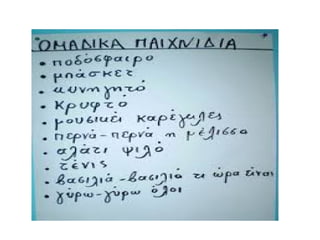 ΟΜΑΔΙΚΑ ΠΑΙΧΝΙΔΙΑ
• ποδόσφαιρο
• μπάσκετ
• κυνηγητό
• κρυφτό
• μουσικές καρέγλες
• περνά-περνά η μέλισσα
• αλάτι ψιλό
• τένις
• βασιλιά-βασιλιά τι ώρα είναι
• γύρω-γύρω όλοι